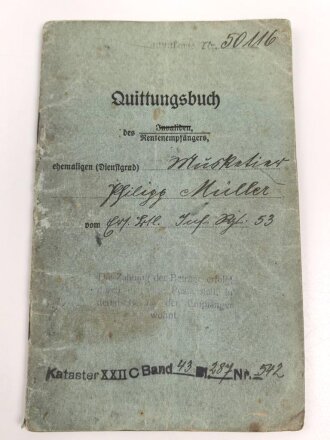 Nr. 50116
Quittungsbuch
des Invaliden,
Rentenempfängers,
ehemaligen (Dienstgrad) Musketier
Philipp Müller
vom Ers. Btl. Inf. Rgt. 53
Die Zahlung der Beträge erfolgt
durch die Postanstalt, in
deren der Empfänger
wohnt.
Kataster XXII C Band 43 Bl. 287 Nr. 542